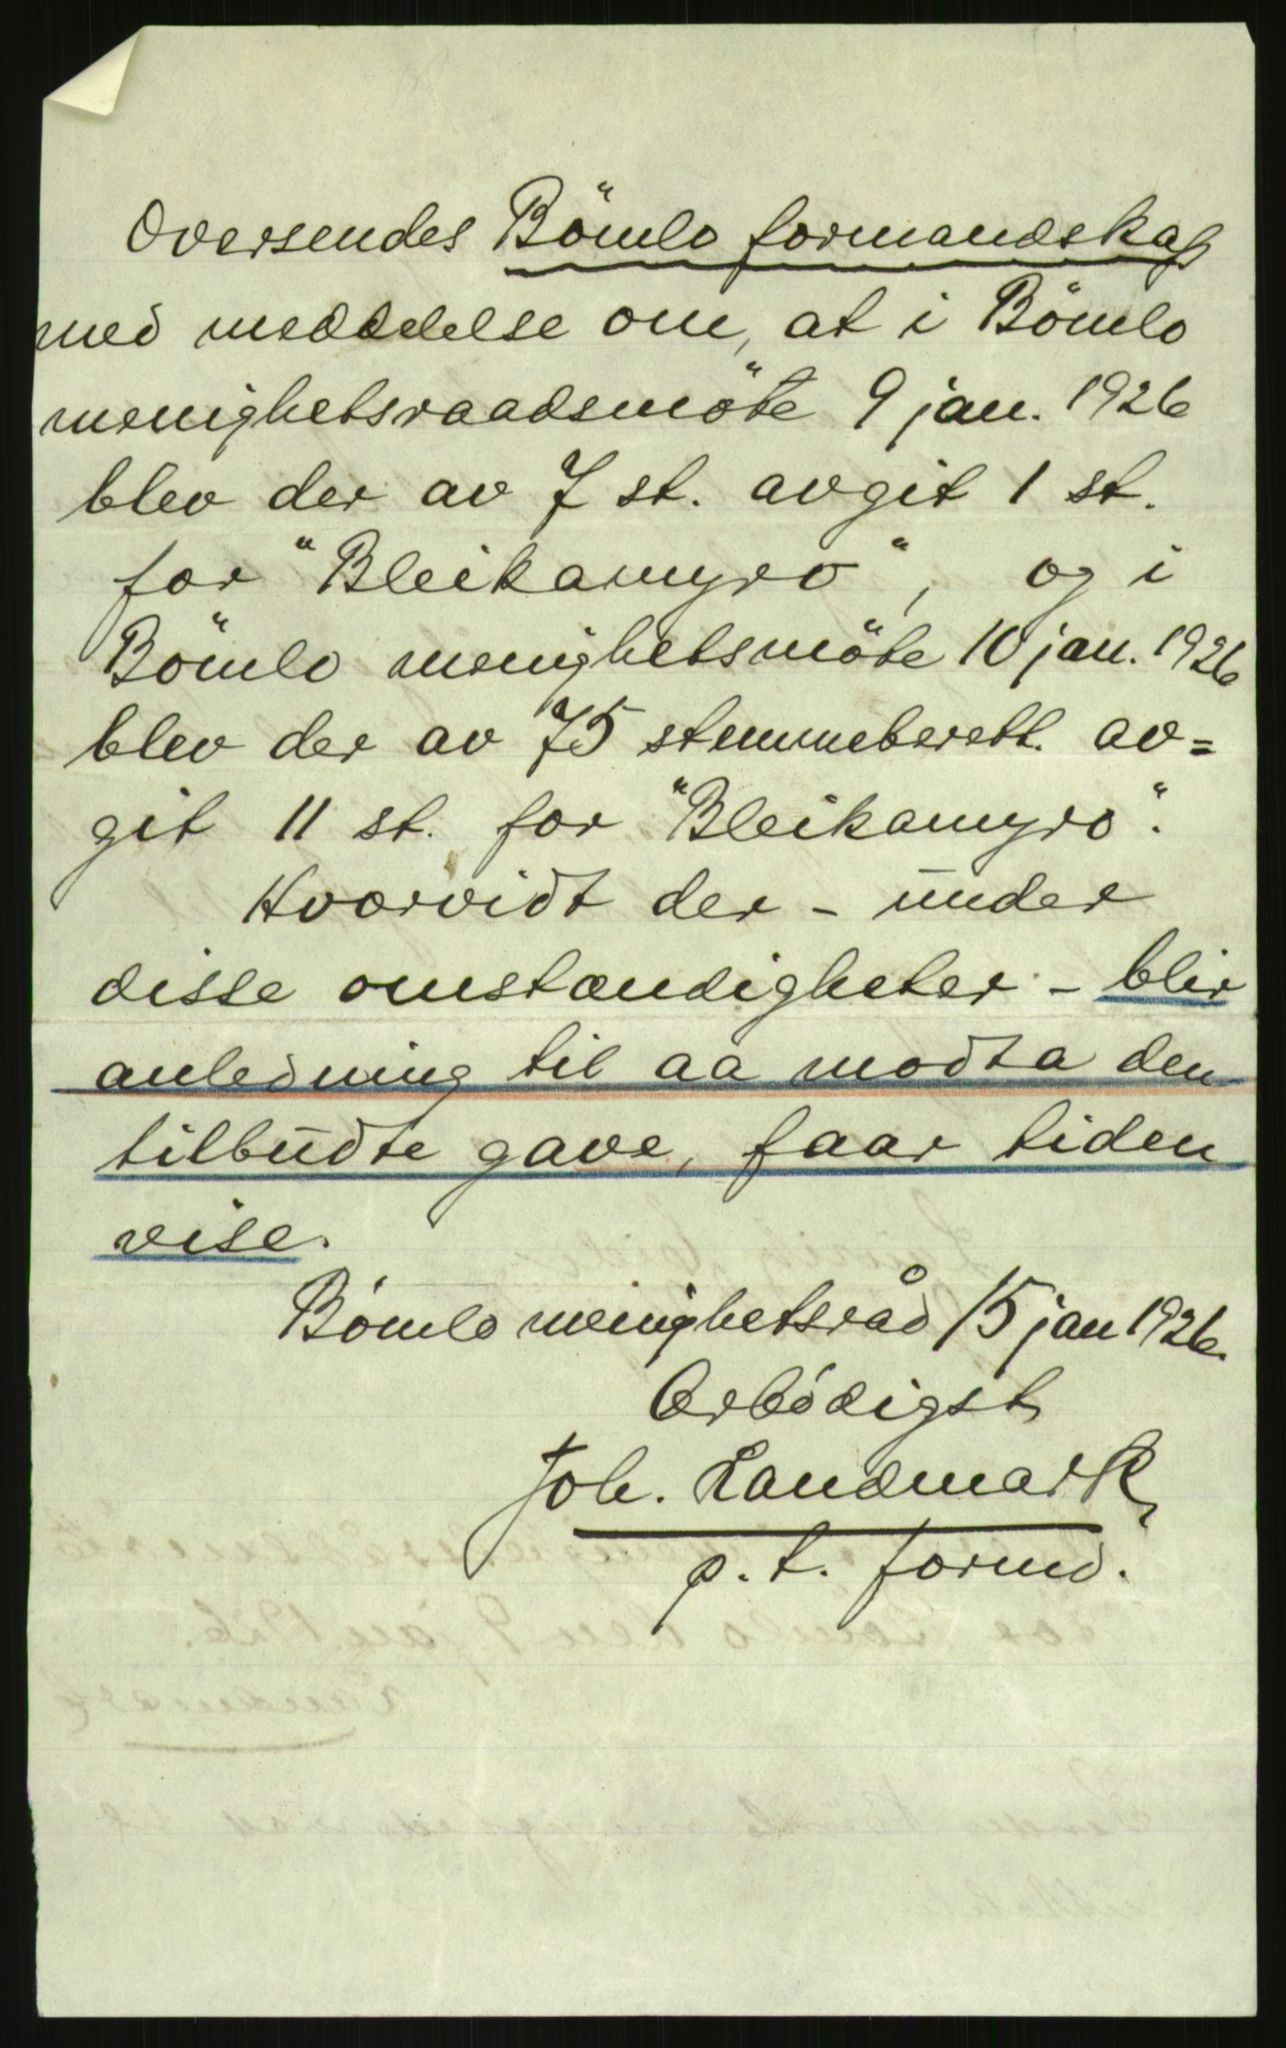 Oversendes Bömlo formandskap
med meddelelse om, at i Bömlo
menighetsraadsmöte 9 jan. 1926
blev der av 7 st. avgit 1 st.
for "Bleikamyro", og i
Bömlo menighetsmöte 10 jan. 1926
blev der av 75 stemmeberett. av=
git 11 st. for "Bleikamyro".
Hvorvidt der - under
disse omstændigheter - blir
anledning til aa modta den
tilbudte gave, faar tiden
vise.
Bómlo menighetsråd 15 jan 1926.
Ærbódigst,
Joh. Landmark,
p. t. formd.